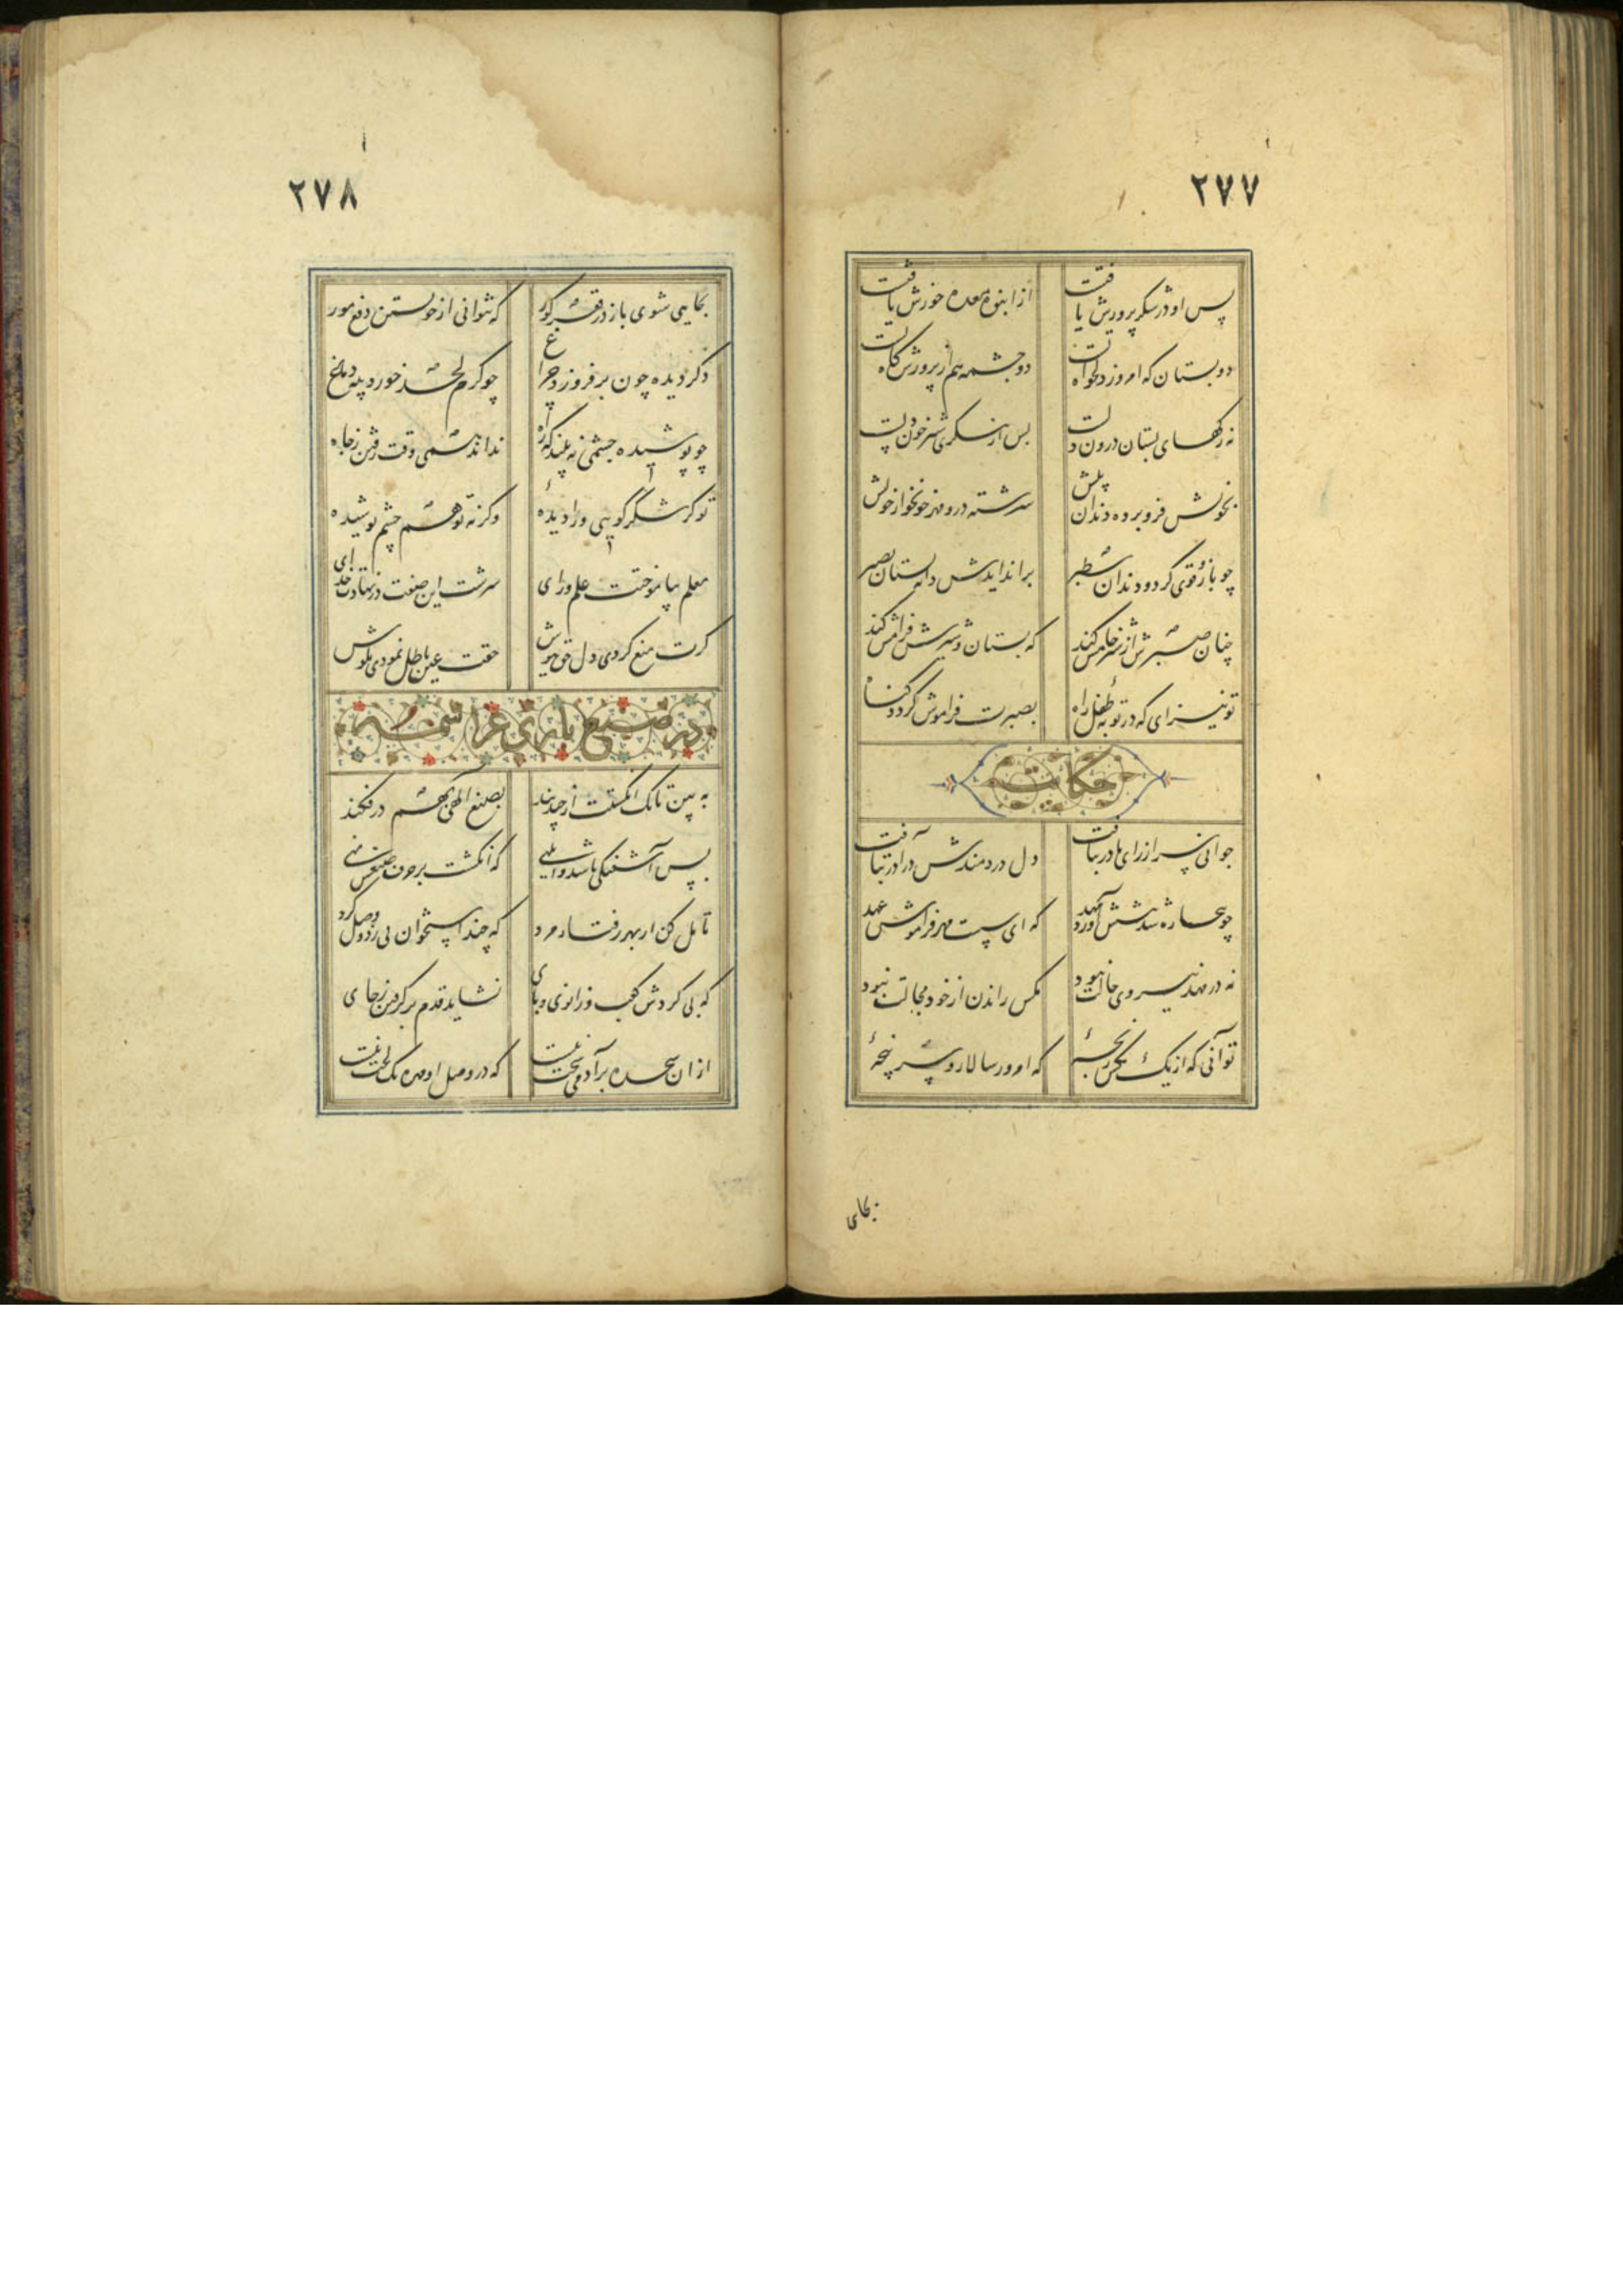 ۲۷۷
پس او در شکم پرورش یافتت از انبوه معده خورش یافتت
دو پستان که امروز دلخواه اوست دو چشمه هم از پرورشگاه اوست
نه رگهای پستان درون دلست پس ار بنگری شیر خون دلست
بخونش فرو برده دندان چو نیش سرشته درو مهر خونخوار خویش
چو بازو قوی کرد و دندان سطبر بر اندایدش دایه پستان بصبر
چنان صبرش از شیر خامش کند که پستان و شیرش فرامش کند
تو نیز ای که در توبهٔ طفل راه بصبرت فراموش گردد گناه
حکایت
جوانی سر از رای مادر بتافت دل دردمندش در آذر بتافت
چو بیچاره شد پیشش آورد مهد که ای سست مهر فراموش عهد
نه در مهد نیروی حالت نبود مگس راندن از خود مجالت نبود
تو آنی که از یک مگس رنجهٔ که امروز سالار و سرپنجهٔ
بجای
۲۷۸
بجایی شوی باز در قعر گور که نتوانی از خویشتن دفع مور
دگر دیده چون بر فروزد چراغ چو کرم لحد خورد پیه دماغ
چو پوشیده چشمی نه بیند که راه نداند همی وقت رفتن ز چاه
تو گر شکر گویی ورا دیدهٔ وگرنه تو هم چشم پوشیدهٔ
معلم نیاموختت علم و رای سرشت این صفت در نهادت خدای
گرت منع کردی دل حق نیوش حقت عین باطل نمودی بگوش
در صنع باری عز اسمه
به بین تا یک انگشت از چند بند بصنع الهی بهم در فکند
پس آشفتگی باشد و ابلهی که انگشت بر حرف صنعش نهی
تامل کن از بهر رفتار مرد که چند استخوان پی زد و وصل کرد
که بی گردش کعب و زانوی و پای نشاید قدم بر گرفتن ز جای
از ان سجده بر آدمی سخت نیست که در صلب او مهره یک لخت نیست